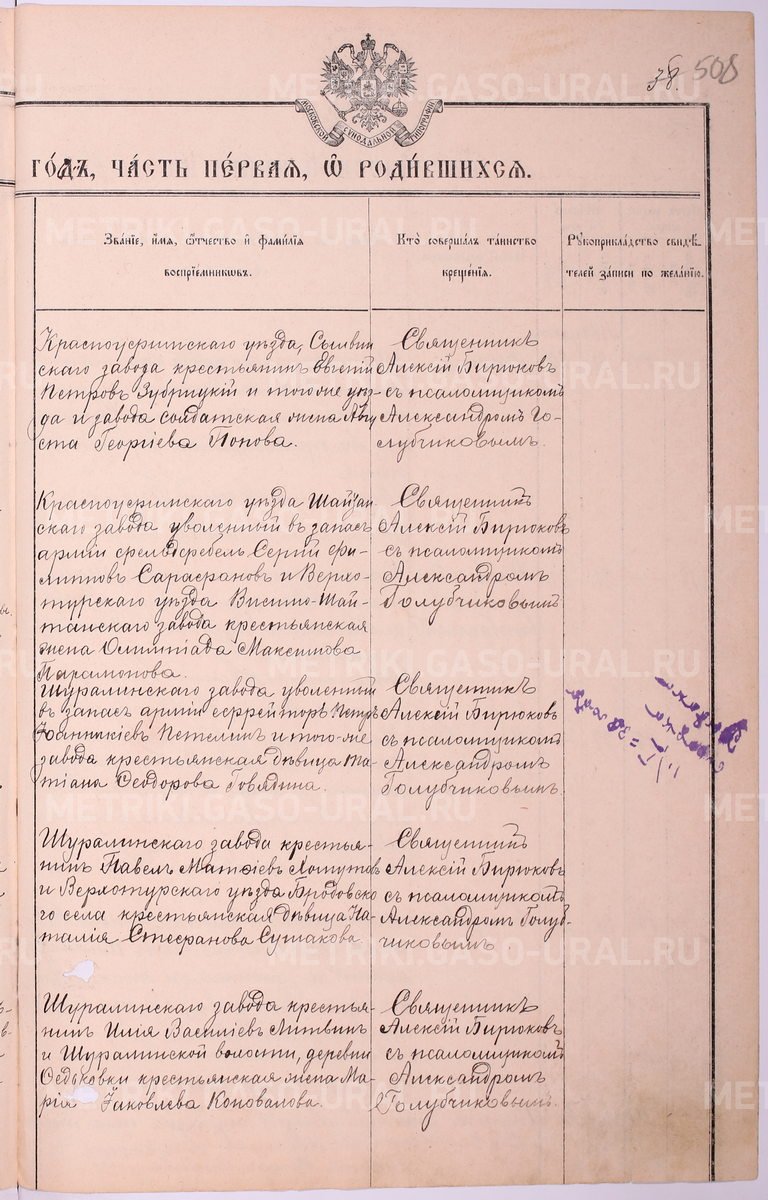 508
МОСКОВСКОЙ СѴНОДАЛЬНОЙ ТИПОГРАФІИ
ГО́ДЪ, ЧА́СТЬ ПЕ́РВАѦ, Ѡ҆ РОДИ́ВШИХСѦ.
Зва́нїе, и҆́мѧ, ѻ҆́тчество и҆ фами́лїѧ
воспрїе́мникѡвъ.
Кто̀ соверша́лъ та́инство
креще́нїѧ.
Рꙋкоприкла́дство свидѣ́-
телей за́писи по жела́нїю.
Красноуфимскаго уѣзда, Сылвин
скаго завода крестьянинъ Евгеній
Петровъ Зубрицкій и того же уѣз-
да и завода солдатская жена Авгу
ста Георгіева Попова.
Священникъ
Алексій Бирюковъ
съ псаломщикомъ
Александромъ Го-
лубчиковымъ.
Красноуфимскаго уѣзда Шайтан
скаго завода уволенный въ запасъ
арміи фельдфебель Сергій Фи-
липповъ Сарафановъ и Верхо-
турскаго уѣзда Висимо-Шай-
танскаго завода крестьянская
жена Олимпіада Максимова
Парамонова.
Священникъ
Алексій Бирюковъ
съ псаломщикомъ
Александромъ
Голубчиковымъ
Шуралинскаго завода уволенный
въ запасъ арміи ефрейторъ Петръ
Іоанникіевъ Петелинъ и того-же
завода крестьянская дѣвица Та-
тіана Ѳеодорова Говядина.
Священникъ
Алексій Бирюковъ
съ псаломщикомъ
Александромъ
Голубчиковымъ.
Шуралинскаго завода крестья-
нинъ Павелъ Матѳіевъ Хомутовъ
и Верхотурскаго уѣзда Бродовско
го села крестьянская дѣвица На-
талія Стефанова Сушакова.
Священникъ
Алексій Бирюковъ
съ псаломщикомъ
Александромъ Голуб-
чиковымъ
Шуралинскаго завода крестья-
нинъ Илія Василіевъ Литвинъ
и Шуралинской волости, деревни
Ѳедьковки крестьянская жена Ма-
рія Іаковлева Коновалова.
Священникъ
Алексій Бирюковъ
съ псаломщикомъ
Александромъ
Голубчиковымъ.
METRIKI.GASO-URAL.RU